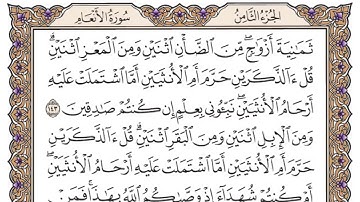 سُورَةُ الأَنْعَامِ الجُزْءُ الثَّامِنُ
ثَمَٰنِيَةَ أَزْوَٰجٍۖ مِّنَ ٱلضَّأْنِ ٱثْنَيْنِ وَمِنَ ٱلْمَعْزِ ٱثْنَيْنِۗ
قُلْ ءَآلذَّكَرَيْنِ حَرَّمَ أَمِ ٱلْأُنثَيَيْنِ أَمَّا ٱشْتَمَلَتْ عَلَيْهِ
أَرْحَامُ ٱلْأُنثَيَيْنِۖ نَبِّـُٔونِي بِعِلْمٍ إِن كُنتُمْ صَٰدِقِينَ ١٤٣
وَمِنَ ٱلْإِبِلِ ٱثْنَيْنِ وَمِنَ ٱلْبَقَرِ ٱثْنَيْنِۗ قُلْ ءَآلذَّكَرَيْنِ
حَرَّمَ أَمِ ٱلْأُنثَيَيْنِ أَمَّا ٱشْتَمَلَتْ عَلَيْهِ أَرْحَامُ ٱلْأُنثَيَيْنِۖ
أَمْ كُنتُمْ شُهَدَآءَ إِذْ وَصَّىٰكُمُ ٱللَّهُ بِهَٰذَاۚ فَمَنْ